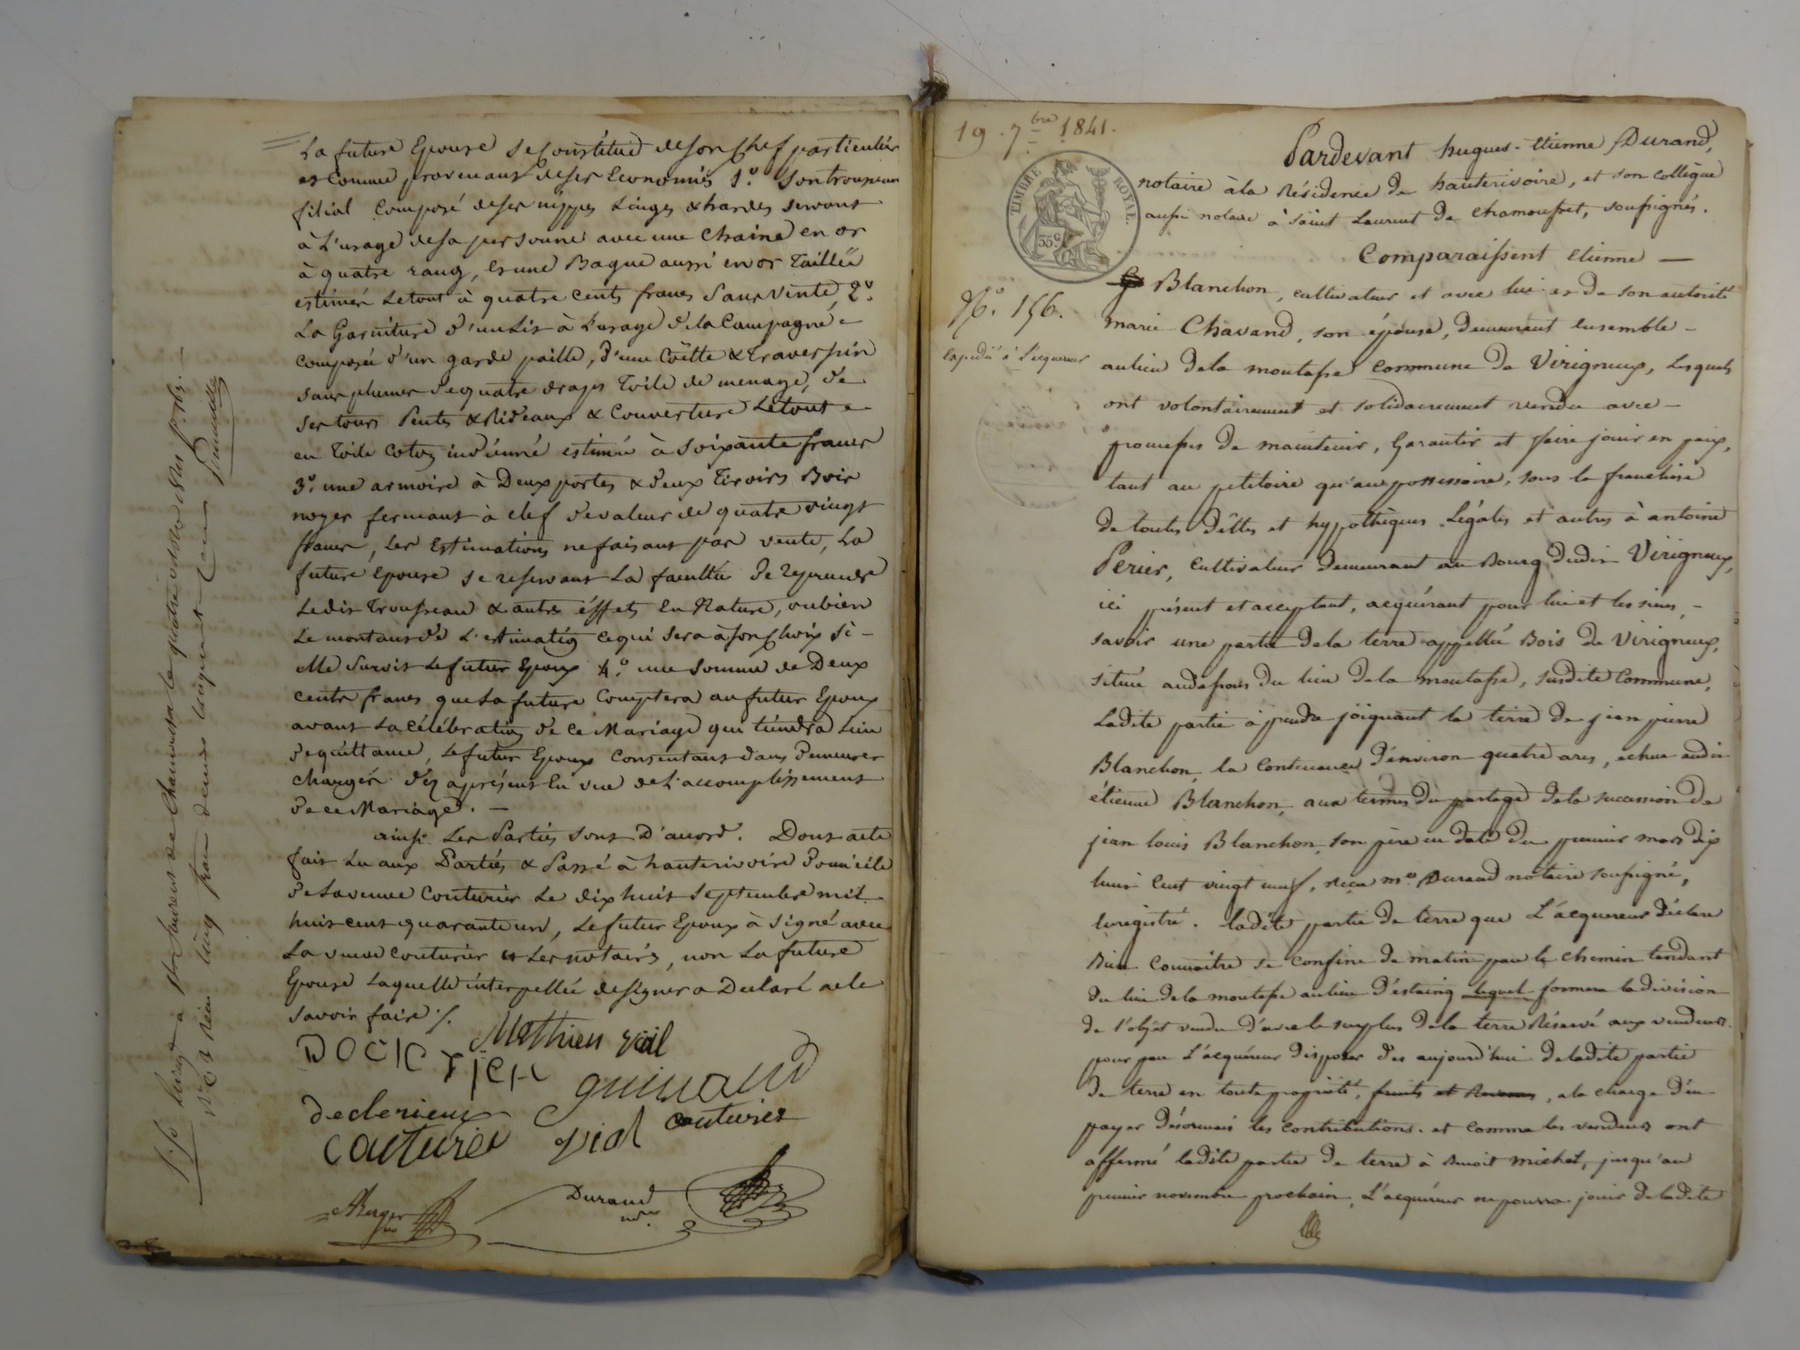 La future Epouse se Constitue de son Chef particulier
et Comme provenant de ses Economies 1.° Son trousseau
filial Composé de ses nippes Linges & hardes servant
à L'usage de sa personne avec une Chaine en or
à quatre rang, et une Bague aussi en or Taillée
estimés Letout à quatre cents francs Sans Vente, 2.°
La Garniture d'un Lit à L'usage de la Campagne
composée d'un garde paille, d'une Coëtte & traverspin
sans plumes de quatre draps Toile de menage, de
ses tours Pentes & Rideaux & Couverture Letout
en Toile Coton indienné estimée à Soixante francs
3.° une armoire à Deux portes & deux Tiroirs Bois
noyer fermant à clef de valeur de quatre vingt
francs, Les Estimations ne faisant pas vente, La
future Epouse se reservant La faculté de reprendre
Ledit Trousseau & autres éffets En Nature, oubien
Le montant de L'estimation ce qui sera à son Choix Si
elle survit Le futur Epoux 4.° une somme de Deux
cents francs que La future Comptera au futur Epoux
avant La célébration de ce Mariage qui tiendra Lieu
de quittance, Le futur Epoux Consentant d'en demeurer
Chargé dès aprésent En vue de L'accomplissement
de ce Mariage. —
ainsi Les Parties sont D'accord. Dont acte
fait Lu aux Parties & Passé à hauterivoire Domicile
de La veuve Couturier Le dix huit Septembre mil
huit cent quarante un, Le futur Epoux à Signé avec
La veuve Couturier et Les notaires, non La future
Epouse Laquelle interpellée de signer a Declaré ne le
savoir faire ./.
Mathieu vial
guinand
declerieux
couturier
Couturier vial
Durand
nre
19 . 7bre 1841.
TIMBRE ROYAL.
35c
N.° 156.
expedié à L'acquereur
Pardevant hugues-Etienne Durand,
notaire à la Résidence de hauterivoire, et son collègue
aussi notaire à Saint Laurent de Chamousset, soussignés.
Comparaissent Etienne —
Blanchon, cultivateur et avec lui et de son autorité
marie Chavand, son épouse, demeurant ensemble —
au lieu de la montasse Commune de Virigneux, Lesquels
ont volontairement et solidairement vendu avec —
promesses de maintenir, Garantir et faire jouir en paix,
tant au pétitoire qu'au possessoire, sous la franchise
de toutes Dêttes et hypothèques Légales et autres à antoine
Perier, Cultivateur Demeurant au Bourg Dudit Virigneux,
ici présent et acceptant, acquérant pour lui et les siens, —
savoir une partie de la terre appellée Bois de Virigneux,
située audessous du lieu de la montasse, susdite Commune,
Ladite partie à prendre joignant la terre de jean pierre
Blanchon, la Contenance d'environ quatre ares, échue audit
étienne Blanchon, aux termes du partage de la succession de
jean louis Blanchon, son père en date du premier mars dix
huit Cent vingt neuf, reçu me Durand notaire soussigné,
Enregistré. ladite partie de terre que L'acquereur Déclare
Bien Connoitre se confine de matin par le chemin tendant
du lieu de la montasse au lieu d'estaing lequel formera la division
de l'objet vendu d'avec le surplus de la terre Réservé aux vendeurs.
pour par L'acquéreur Disposer dès aujourd'hui de ladite partie
De terre en toute propriété, fruits et Revenus, a la charge d'en
payer Désormais les contributions. et comme les vendeurs ont
affermé ladite partie de terre à Benoit michel, jusqu'au
premier novembre prochain, L'acquéreur ne pourra jouir de ladite